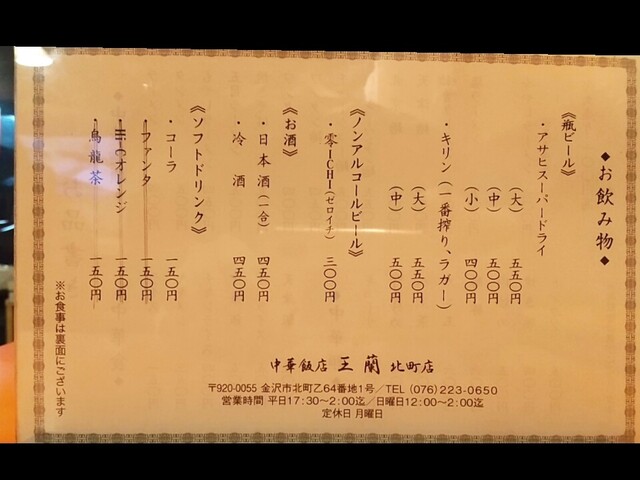 ◆お飲み物◆
《瓶ビール》
・アサヒスーパードライ
（大） 五五〇円
（中） 五〇〇円
（小） 四〇〇円
・キリン（一番搾り、ラガー）
（大） 五五〇円
（中） 五〇〇円
《ノンアルコールビール》
・零ICHI（ゼロイチ） 三〇〇円
《お酒》
・日本酒（一合） 四五〇円
・冷酒 四五〇円
《ソフトドリンク》
・コーラ 一五〇円
・ファンタ 一五〇円
・HiCオレンジ 一五〇円
・烏龍茶 一五〇円
※お食事は裏面にございます
中華飯店 王蘭 北町店
〒920-0055 金沢市北町乙64番地1号／TEL (076)223-0650
営業時間 平日17:30～2:00迄／日曜日12:00～2:00迄
定休日 月曜日